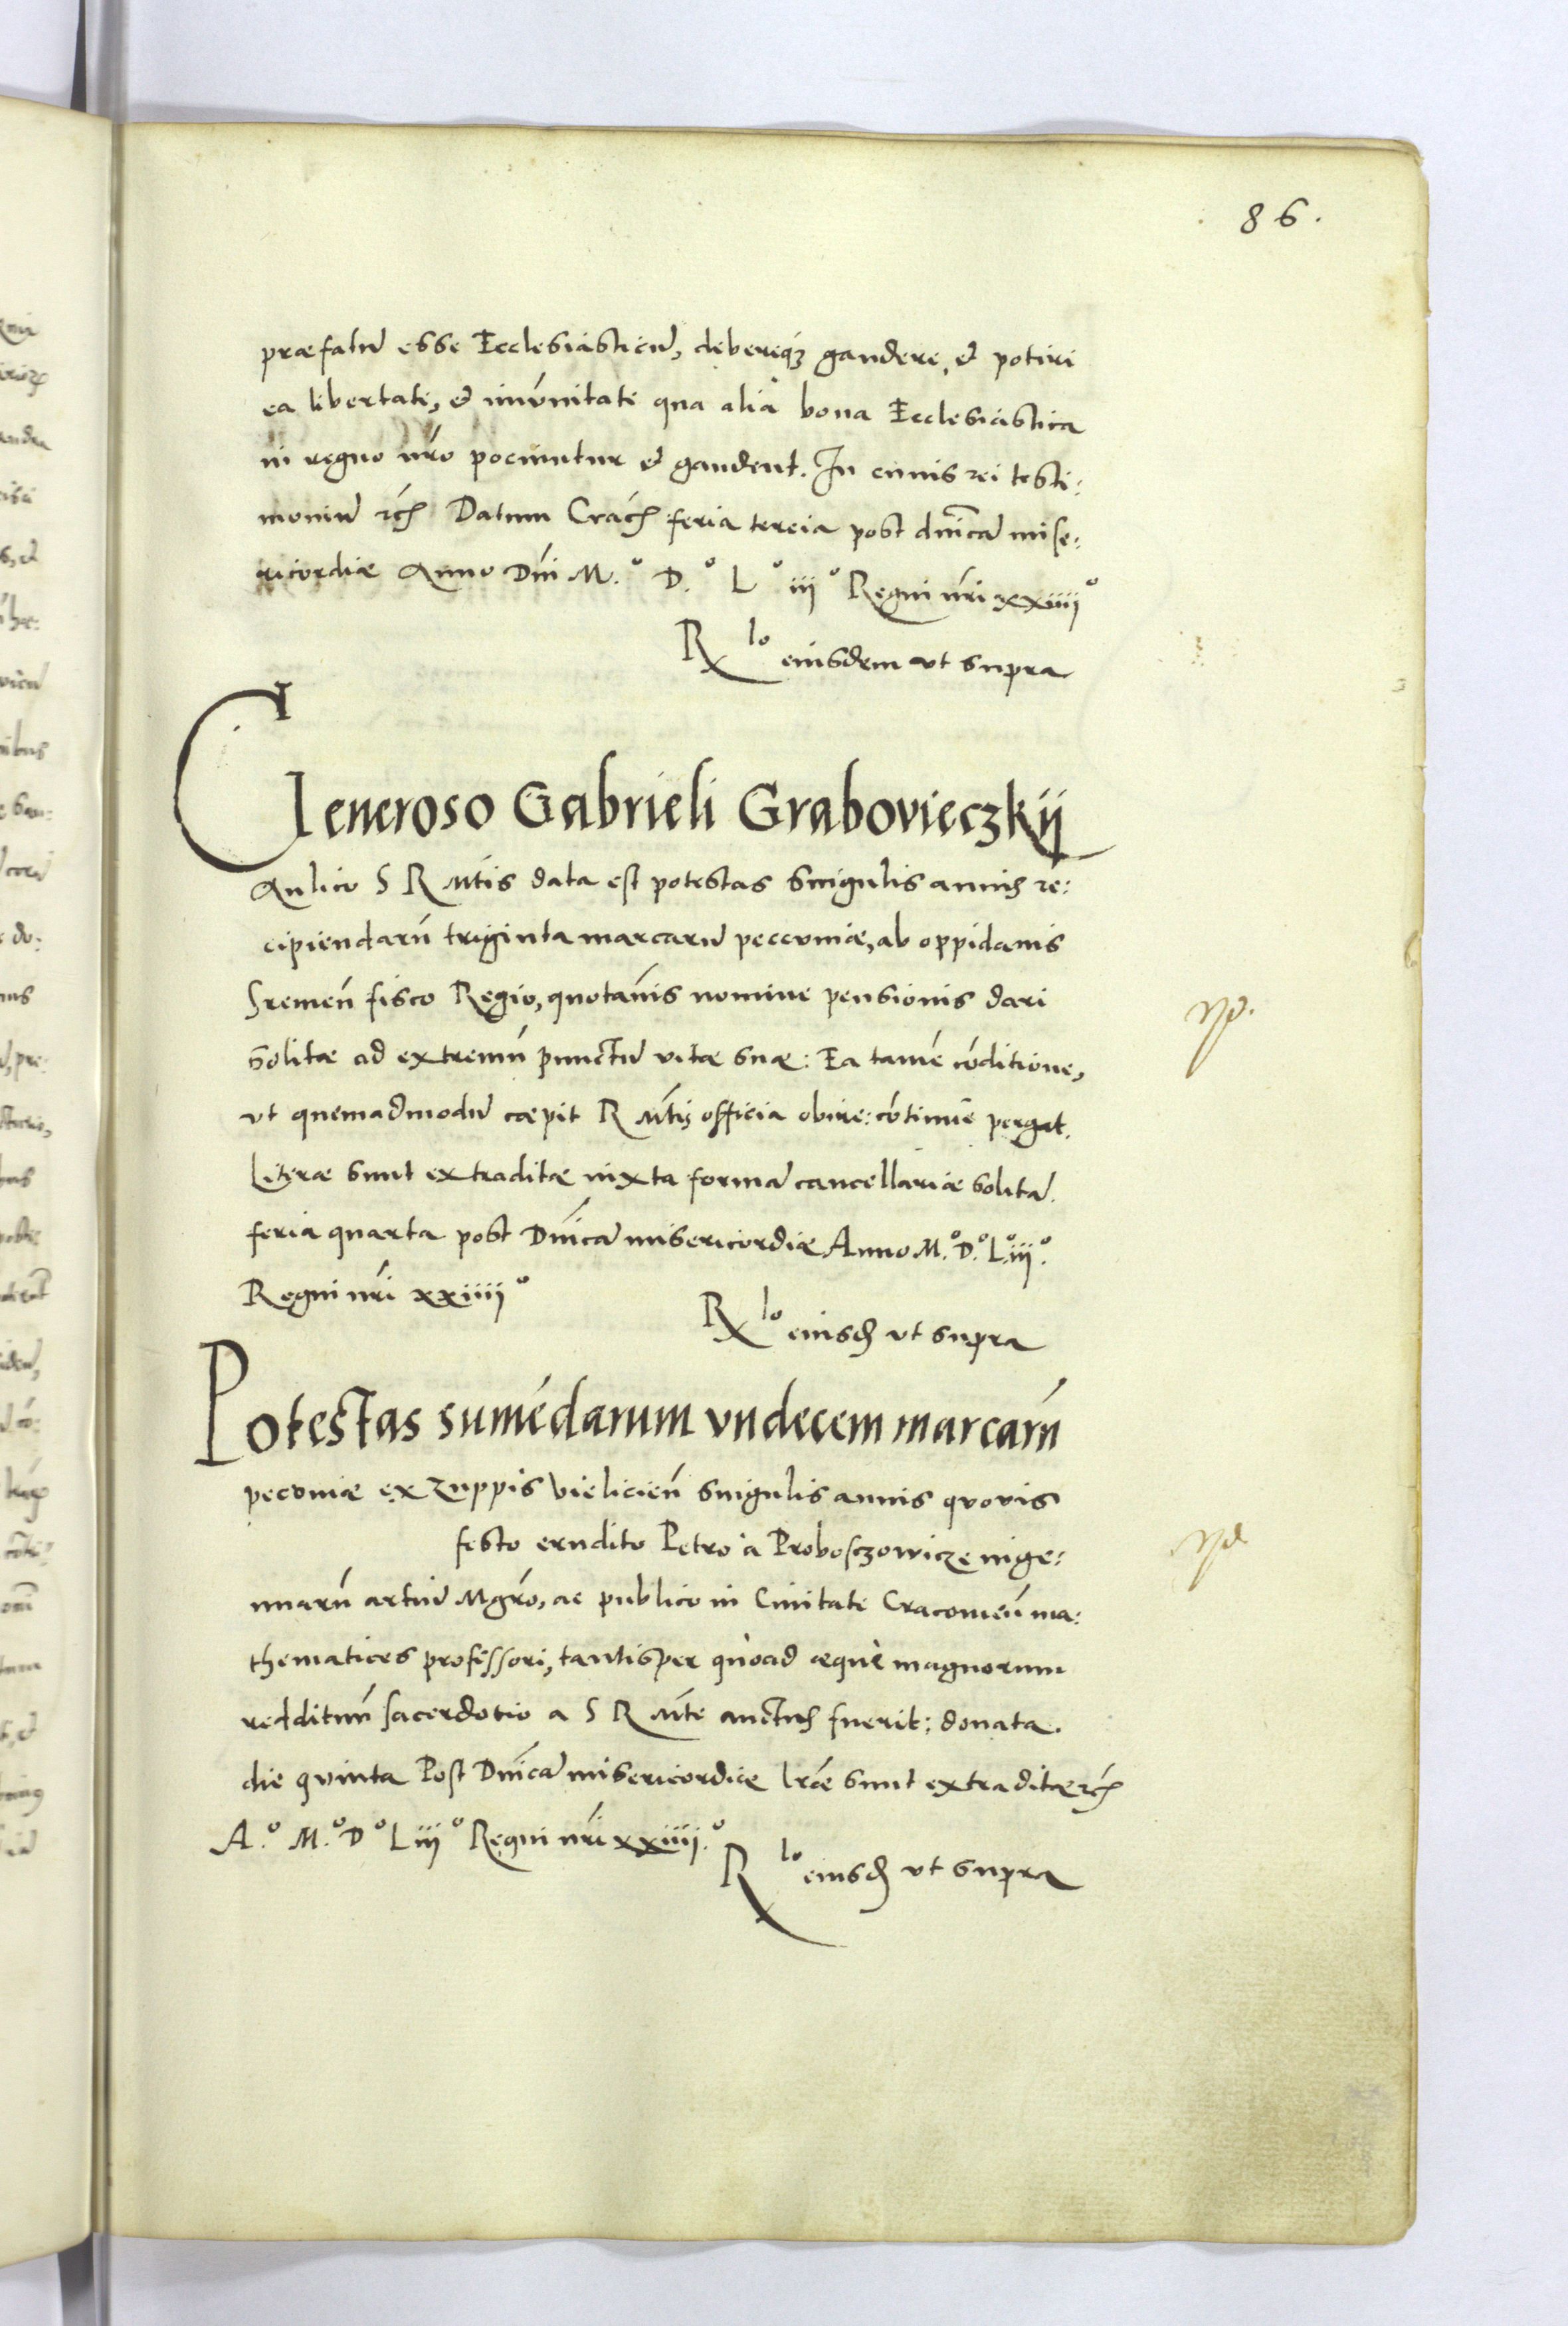 86.
præfatū esse Ecclesiasticū, debereqꝫ gaudere, et potiri
ea libertate, et imūnitate qua alia bona Ecclesiastica
in regno nro̅ pociuntur et gaudent. In cuius rei testi:
moniū etc̅ Datum Crac̅ feria tercia post dn̅icā mise:
ricordiæ Anno Dn̅i M.° D.° L° iii° Regni nr̅i xxiiii°
Rlo eiusdem ut supra
Generoso Gabrieli Grabovieczkij
Aulico S R Mt̅is data est potestas singulis annis re:
cipiendarū triginta marcarū peccuniæ, ab oppidanis
Sremen̅ fisco Regio, quotan̅is nomine pensionis dari
solitæ ad extremū punctū vitæ suæ: Ea tamē cōditione,
vt quemadmodū cæpit R Mt̅is officia obire: cōtinue pergat.
Literæ sunt extraditæ iuxta formā cancellariæ solitā.
feria quarta post Dn̅icā misericordiæ Anno M.° D.° L° iii.°
Regni nr̅i xxiiii°
Rlo eiusd̅ vt supra
Potestas sumēdarum vndecem marcarū
pecuniæ ex Zuppis Vielicien̅ singulis annis quovis
festo erudito Petro à Proboszczowicze inge:
nuarū artiū Mgr̅o, ac publico in Ciuitate Cracouien̅ ma:
thematices professori, tantisper quoad æque magnorum
reddituū sacerdotio a S R Mt̅e auctus fuerit: donata.
die quinta Post Dn̅icā misericordiæ lr̅æ sunt extraditæ etc̅
A.° M.° D° L iii° Regni nr̅i xxiiii.°
Rlo eiusd̅ vt supra